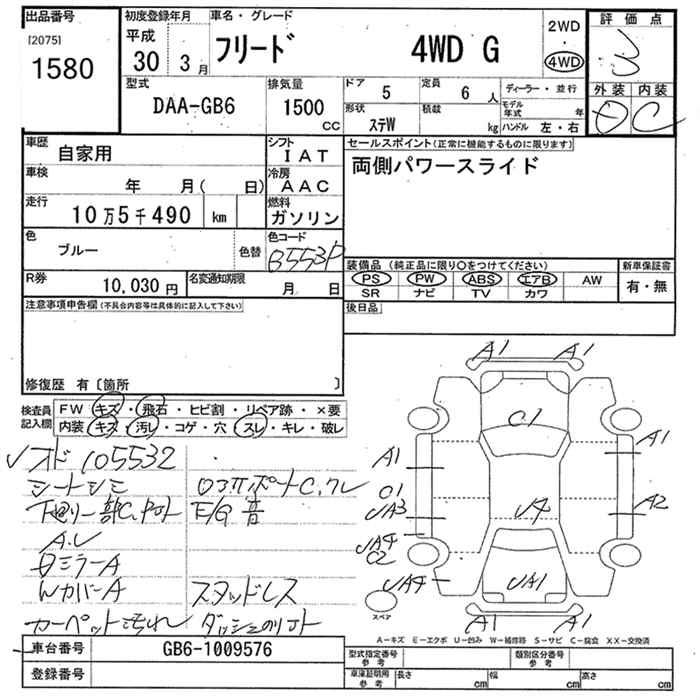 出品番号
[2075]
1580
初度登録年月
平成
30 3月
車名・グレード
フリード 4WD G
2WD
・
4WD
評価点
外装 内装
C
型式
DAA-GB6
排気量
1500
cc
ドア
5
定員
6 人
形状
ステW
積載
kg
ディーラー・並行
モデル年式 年
ハンドル 左・右
車歴
自家用
シフト
IAT
車検
年 月( 日)
冷房
AAC
走行
10万5千490 km
燃料
ガソリン
色
ブルー
色替
色コード
B553P
R券
10,030円
名変通知期限
月 日
セールスポイント(正常に機能するものに限ります)
両側パワースライド
装備品(純正品に限り○をつけてください)
PS PW ABS エアB AW
SR ナビ TV カワ
新車保証書
有・無
後日品
注意事項申告欄(不具合内容等は具体的に記入して下さい)
修復歴 有〔箇所 〕
検査員記入欄
FW キズ・飛石・ヒビ割・リペア跡・×要
内装 キズ・汚レ・コゲ・穴・スレ・キレ・破レ
オド 105532
シートシミ
下廻リ一部C,Pオト E/G 音
A.L
ミラーA
WカバーA スタッドレス
カーペット汚れ
A1 A1
C1
A1
A1
C1
UA3
UA4
C2
UA4
A2
UA1
A1 A1
スペア
A-キズ E-エクボ U-凹み W-補修跡 S-サビ C-腐食 XX-交換済
車台番号
GB6-1009576
登録番号
型式指定番号
参考
類別区分番号
参考
車庫証明用
参考
長さ cm
幅 cm
高さ cm